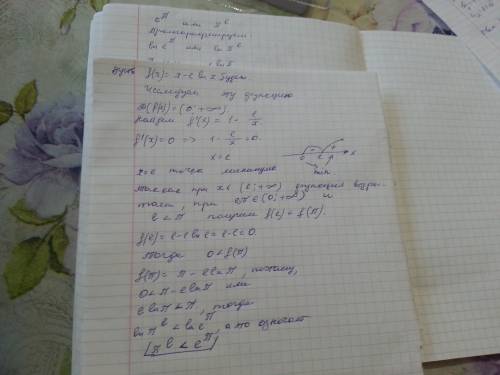 e^π или π^e
Прологарифмируем:
ln e^π или ln π^e
f(x) = x - e ln x
Исследуем эту функцию
D(f(x)) = (0; +∞)
Найдем f'(x) = 1 - e/x
f'(x) = 0 => 1 - e/x = 0.
x = e
0 e x
min
x = e точка минимума
Так как при x ∈ (e; +∞) функция возрас-
тает, при e, π ∈ (0; +∞) и
e < π получим f(e) < f(π).
f(e) = e - e ln e = e - e = 0.
Тогда 0 < f(π)
f(π) = π - e ln π, поэтому,
0 < π - e ln π или
e ln π < π, тогда
ln π^e < ln e^π, а это означает
π^e < e^π